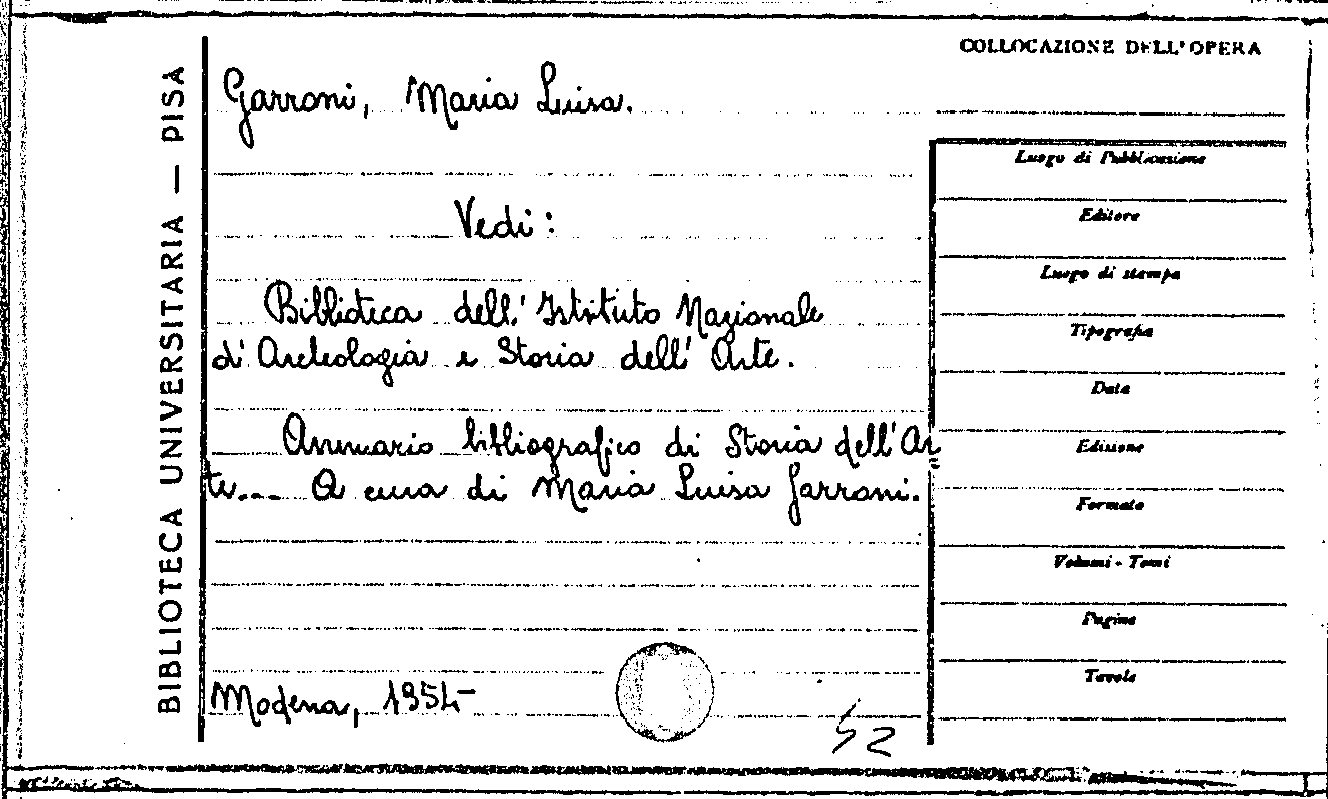 COLLOCAZIONE DELL'OPERA
BIBLIOTECA UNIVERSITARIA — PISA
Garroni, Maria Luisa.
Vedi:
Biblioteca dell'Istituto Nazionale
d'Archeologia e Storia dell'Arte.
Annuario bibliografico di Storia dell'Ar=
te... A cura di Maria Luisa Garroni.
Modena, 1954-
52
Luogo di Pubblicazione
Editore
Luogo di stampa
Tipografia
Data
Edizione
Formato
Volumi - Tomi
Pagine
Tavole